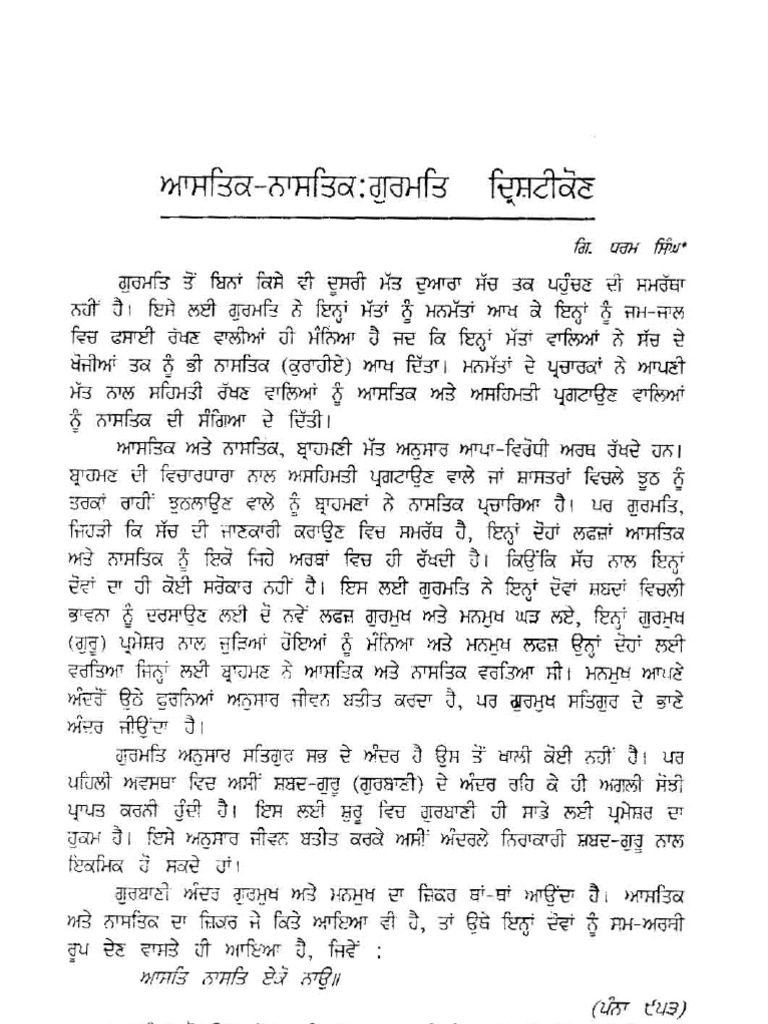 ਆਸਤਿਕ-ਨਾਸਤਿਕ:ਗੁਰਮਤਿ ਦ੍ਰਿਸ਼ਟੀਕੋਣ
ਗਿ. ਧਰਮ ਸਿੰਘ*
ਗੁਰਮਤਿ ਤੋਂ ਬਿਨਾਂ ਕਿਸੇ ਵੀ ਦੂਸਰੀ ਮੱਤ ਦੁਆਰਾ ਸੱਚ ਤਕ ਪਹੁੰਚਣ ਦੀ ਸਮਰੱਥਾ
ਨਹੀਂ ਹੈ। ਇਸੇ ਲਈ ਗੁਰਮਤਿ ਨੇ ਇਨ੍ਹਾਂ ਮੱਤਾਂ ਨੂੰ ਮਨਮੱਤਾਂ ਆਖ ਕੇ ਇਨ੍ਹਾਂ ਨੂੰ ਜਮ-ਜਾਲ
ਵਿਚ ਫਸਾਈ ਰੱਖਣ ਵਾਲੀਆਂ ਹੀ ਮੰਨਿਆ ਹੈ ਜਦ ਕਿ ਇਨ੍ਹਾਂ ਮੱਤਾਂ ਵਾਲਿਆਂ ਨੇ ਸੱਚ ਦੇ
ਖੋਜੀਆਂ ਤਕ ਨੂੰ ਭੀ ਨਾਸਤਿਕ (ਕੁਰਾਹੀਏ) ਆਖ ਦਿੱਤਾ। ਮਨਮੱਤਾਂ ਦੇ ਪ੍ਰਚਾਰਕਾਂ ਨੇ ਆਪਣੀ
ਮੱਤ ਨਾਲ ਸਹਿਮਤੀ ਰੱਖਣ ਵਾਲਿਆਂ ਨੂੰ ਆਸਤਿਕ ਅਤੇ ਅਸਹਿਮਤੀ ਪ੍ਰਗਟਾਉਣ ਵਾਲਿਆਂ
ਨੂੰ ਨਾਸਤਿਕ ਦੀ ਸੰਗਿਆ ਦੇ ਦਿੱਤੀ।
ਆਸਤਿਕ ਅਤੇ ਨਾਸਤਿਕ, ਬ੍ਰਾਹਮਣੀ ਮੱਤ ਅਨੁਸਾਰ ਆਪਾ-ਵਿਰੋਧੀ ਅਰਥ ਰੱਖਦੇ ਹਨ।
ਬ੍ਰਾਹਮਣ ਦੀ ਵਿਚਾਰਧਾਰਾ ਨਾਲ ਅਸਹਿਮਤੀ ਪ੍ਰਗਟਾਉਣ ਵਾਲੇ ਜਾਂ ਸ਼ਾਸਤਰਾਂ ਵਿਚਲੇ ਝੂਠ ਨੂੰ
ਤਰਕਾਂ ਰਾਹੀਂ ਝੁਨਲਾਉਣ ਵਾਲੇ ਨੂੰ ਬ੍ਰਾਹਮਣਾਂ ਨੇ ਨਾਸਤਿਕ ਪ੍ਰਚਾਰਿਆ ਹੈ। ਪਰ ਗੁਰਮਤਿ,
ਜਿਹੜੀ ਕਿ ਸੱਚ ਦੀ ਜਾਣਕਾਰੀ ਕਰਾਉਣ ਵਿਚ ਸਮਰੱਥ ਹੈ, ਇਨ੍ਹਾਂ ਦੋਹਾਂ ਲਫਜ਼ਾਂ ਆਸਤਿਕ
ਅਤੇ ਨਾਸਤਿਕ ਨੂੰ ਇਕੋ ਜਿਹੇ ਅਰਥਾਂ ਵਿਚ ਹੀ ਰੱਖਦੀ ਹੈ। ਕਿਉਂਕਿ ਸੱਚ ਨਾਲ ਇਨ੍ਹਾਂ
ਦੋਵਾਂ ਦਾ ਹੀ ਕੋਈ ਸਰੋਕਾਰ ਨਹੀਂ ਹੈ। ਇਸ ਲਈ ਗੁਰਮਤਿ ਨੇ ਇਨ੍ਹਾਂ ਦੋਵਾਂ ਸ਼ਬਦਾਂ ਵਿਚਲੀ
ਭਾਵਨਾ ਨੂੰ ਦਰਸਾਉਣ ਲਈ ਦੋ ਨਵੇਂ ਲਫਜ਼ ਗੁਰਮੁਖ ਅਤੇ ਮਨਮੁਖ ਘੜ ਲਏ, ਇਨ੍ਹਾਂ ਗੁਰਮੁਖ
(ਗੁਰੂ) ਪ੍ਰਮੇਸ਼ਰ ਨਾਲ ਜੁੜਿਆਂ ਹੋਇਆਂ ਨੂੰ ਮੰਨਿਆ ਅਤੇ ਮਨਮੁਖ ਲਫਜ਼ ਉਨ੍ਹਾਂ ਦੋਹਾਂ ਲਈ
ਵਰਤਿਆ ਜਿਨ੍ਹਾਂ ਲਈ ਬ੍ਰਾਹਮਣ ਨੇ ਆਸਤਿਕ ਅਤੇ ਨਾਸਤਿਕ ਵਰਤਿਆ ਸੀ। ਮਨਮੁਖ ਆਪਣੇ
ਅੰਦਰੋਂ ਉਠੇ ਫੁਰਨਿਆਂ ਅਨੁਸਾਰ ਜੀਵਨ ਬਤੀਤ ਕਰਦਾ ਹੈ, ਪਰ ਗੁਰਮੁਖ ਸਤਿਗੁਰ ਦੇ ਭਾਣੇ
ਅੰਦਰ ਜੀਉਂਦਾ ਹੈ।
ਗੁਰਮਤਿ ਅਨੁਸਾਰ ਸਤਿਗੁਰ ਸਭ ਦੇ ਅੰਦਰ ਹੈ ਉਸ ਤੋਂ ਖਾਲੀ ਕੋਈ ਨਹੀਂ ਹੈ। ਪਰ
ਪਹਿਲੀ ਅਵਸਥਾ ਵਿਦ ਅਸੀਂ ਸ਼ਬਦ-ਗੁਰੂ (ਗੁਰਬਾਣੀ) ਦੇ ਅੰਦਰ ਰਹਿ ਕੇ ਹੀ ਅਗਲੀ ਸੋਝੀ
ਪ੍ਰਾਪਤ ਕਰਨੀ ਹੁੰਦੀ ਹੈ। ਇਸ ਲਈ ਸ਼ੁਰੂ ਵਿਚ ਗੁਰਬਾਣੀ ਹੀ ਸਾਡੇ ਲਈ ਪ੍ਰਮੇਸ਼ਰ ਦਾ
ਹੁਕਮ ਹੈ। ਇਸੇ ਅਨੁਸਾਰ ਜੀਵਨ ਬਤੀਤ ਕਰਕੇ ਅਸੀਂ ਅੰਦਰਲੇ ਨਿਰਾਕਾਰੀ ਸ਼ਬਦ-ਗੁਰੂ ਨਾਲ
ਇਕਮਿਕ ਹੋ ਸਕਦੇ ਹਾਂ।
ਗੁਰਬਾਣੀ ਅੰਦਰ ਗੁਰਮੁਖ ਅਤੇ ਮਨਮੁਖ ਦਾ ਜ਼ਿਕਰ ਥਾਂ-ਥਾਂ ਆਉਂਦਾ ਹੈ। ਆਸਤਿਕ
ਅਤੇ ਨਾਸਤਿਕ ਦਾ ਜ਼ਿਕਰ ਜੇ ਕਿਤੇ ਆਇਆ ਵੀ ਹੈ, ਤਾਂ ਉਥੇ ਇਨ੍ਹਾਂ ਦੋਵਾਂ ਨੂੰ ਸਮ-ਅਰਥੀ
ਰੂਪ ਦੇਣ ਵਾਸਤੇ ਹੀ ਆਇਆ ਹੈ, ਜਿਵੇਂ :
ਆਸਤਿ ਨਾਸਤਿ ਏਕੋ ਨਾਉ॥
(ਪੰਨਾ ੯੫੩)